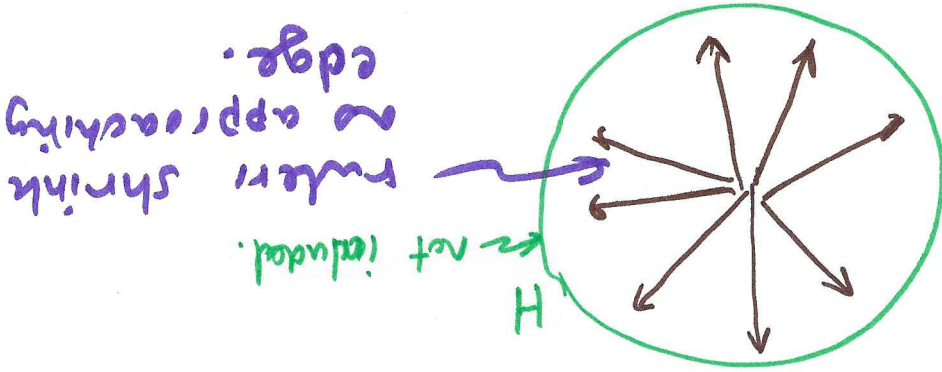 H
not included.
rulers shrink
as approaching
edge.